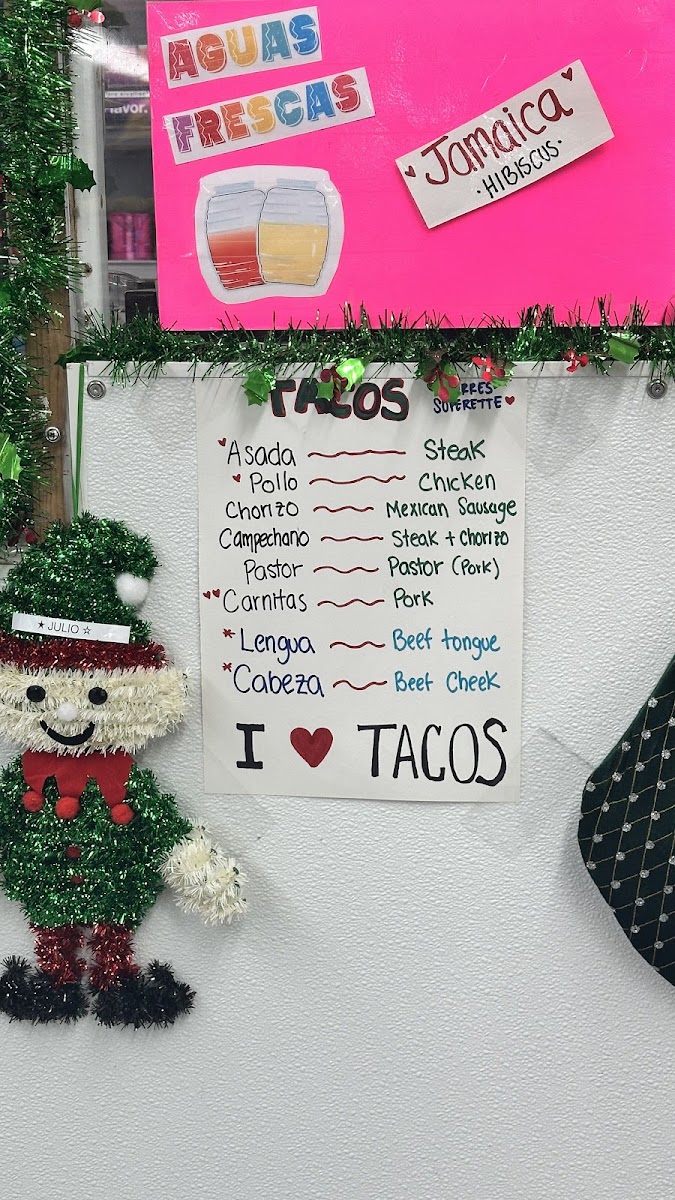 AGUAS
FRESCAS
Jamaica
·HIBISCUS·
lavor.
TACOS
SUPERETTE
Asada Steak
Pollo Chicken
Chorizo Mexican Sausage
Campechano Steak + Chorizo
Pastor Pastor (Pork)
Carnitas Pork
*Lengua Beef tongue
*Cabeza Beef Cheek
I ♥ TACOS
★ JULIO ☆